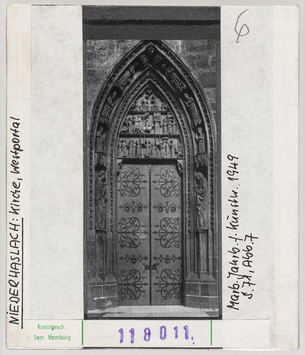 6
NIEDERHASLACH: Kirche, Westportal
Marb. Jahrb. f. Kunstw. 1949
S. 71, Abb. 7
Kunstgesch.
Sem. Hamburg
118011